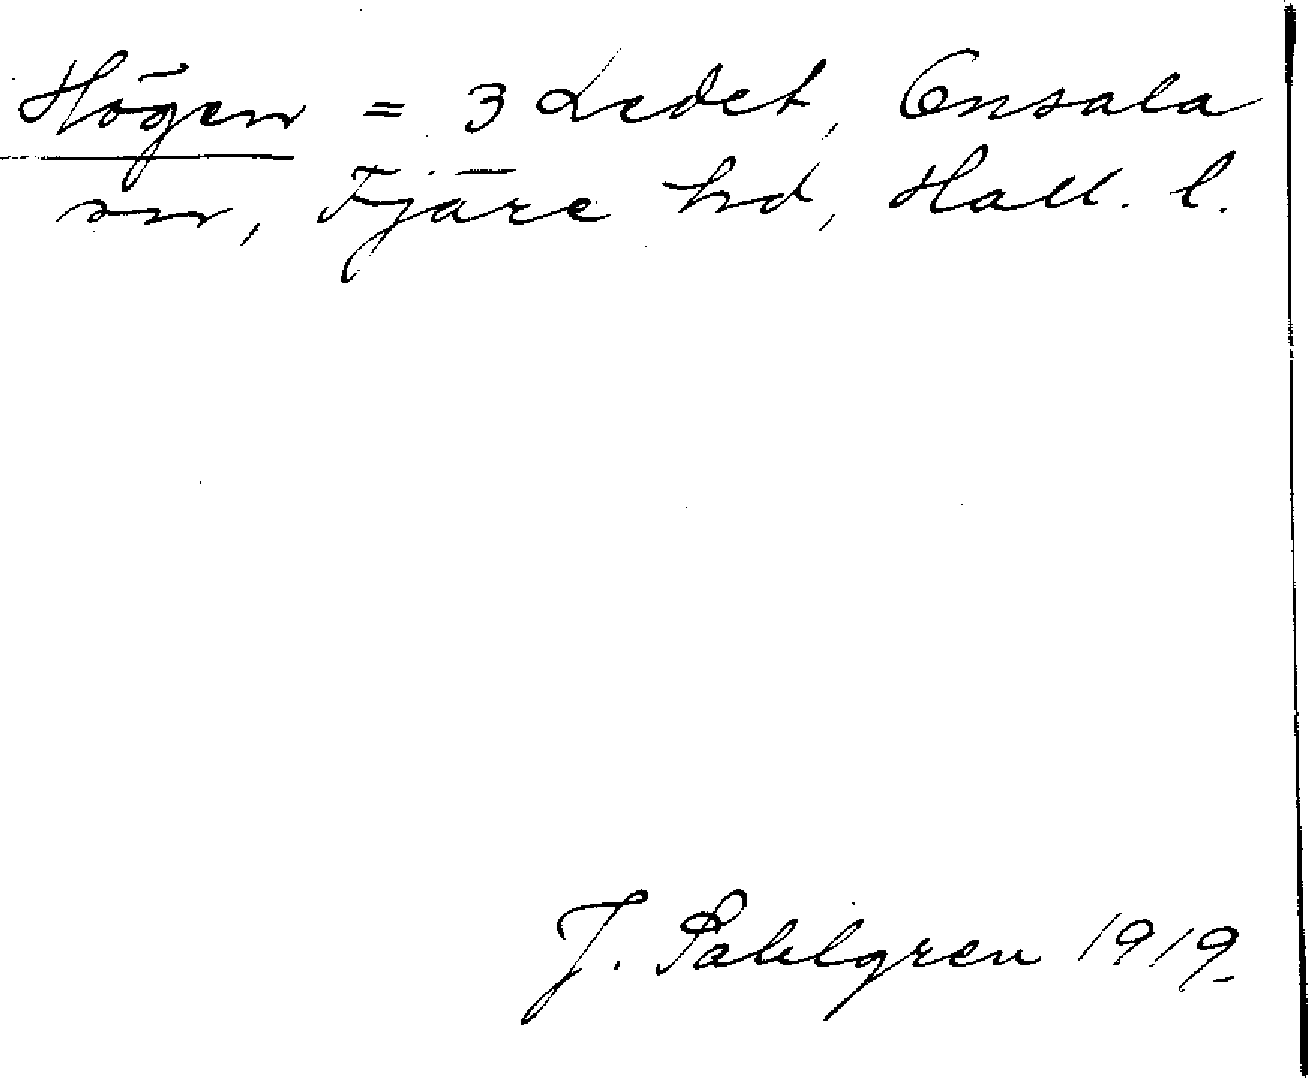 Högen = 3 Ledet, Onsala
sn, Fjäre hd, Hall. l.
J. Sahlgren 1919.